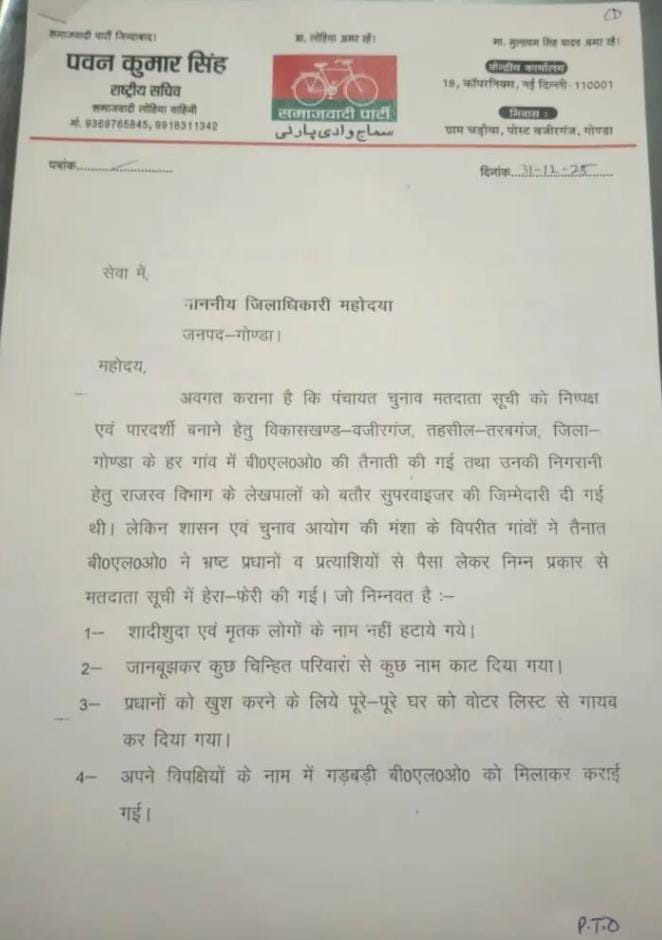 ①
समाजवादी पार्टी जिन्दाबाद!
डा. लोहिया अमर रहें!
मा. मुलायम सिंह यादव अमर रहें!
पवन कुमार सिंह
राष्ट्रीय सचिव
समाजवादी लोहिया वाहिनी
मो. 9369765845, 9918311342
समाजवादी पार्टी
سماج وادی پارٹی
केन्द्रीय कार्यालय
18, कॉपरनिक्स, नई दिल्ली-110001
निवास :
ग्राम चड़ौवा, पोस्ट वजीरगंज, गोण्डा
पत्रांक..............................
दिनांक...31-12-25..........
सेवा में,
माननीय जिलाधिकारी महोदया
जनपद–गोण्डा।
महोदय,
अवगत कराना है कि पंचायत चुनाव मतदाता सूची को निष्पक्ष
एवं पारदर्शी बनाने हेतु विकासखण्ड–वजीरगंज, तहसील–तरबगंज, जिला–
गोण्डा के हर गांव में बी0एल0ओ0 की तैनाती की गई तथा उनकी निगरानी
हेतु राजस्व विभाग के लेखपालों को बतौर सुपरवाइजर की जिम्मेदारी दी गई
थी। लेकिन शासन एवं चुनाव आयोग की मंशा के विपरीत गांवों मे तैनात
बी0एल0ओ0 ने भ्रष्ट प्रधानों व प्रत्याशियों से पैसा लेकर निम्न प्रकार से
मतदाता सूची में हेरा–फेरी की गई। जो निम्नवत है :–
1– शादीशुदा एवं मृतक लोगों के नाम नहीं हटाये गये।
2– जानबूझकर कुछ चिन्हित परिवारों से कुछ नाम काट दिया गया।
3– प्रधानों को खुश करने के लिये पूरे–पूरे घर को वोटर लिस्ट से गायब
कर दिया गया।
4– अपने विपक्षियों के नाम में गड़बड़ी बी0एल0ओ0 को मिलाकर कराई
गई।
P.T.O